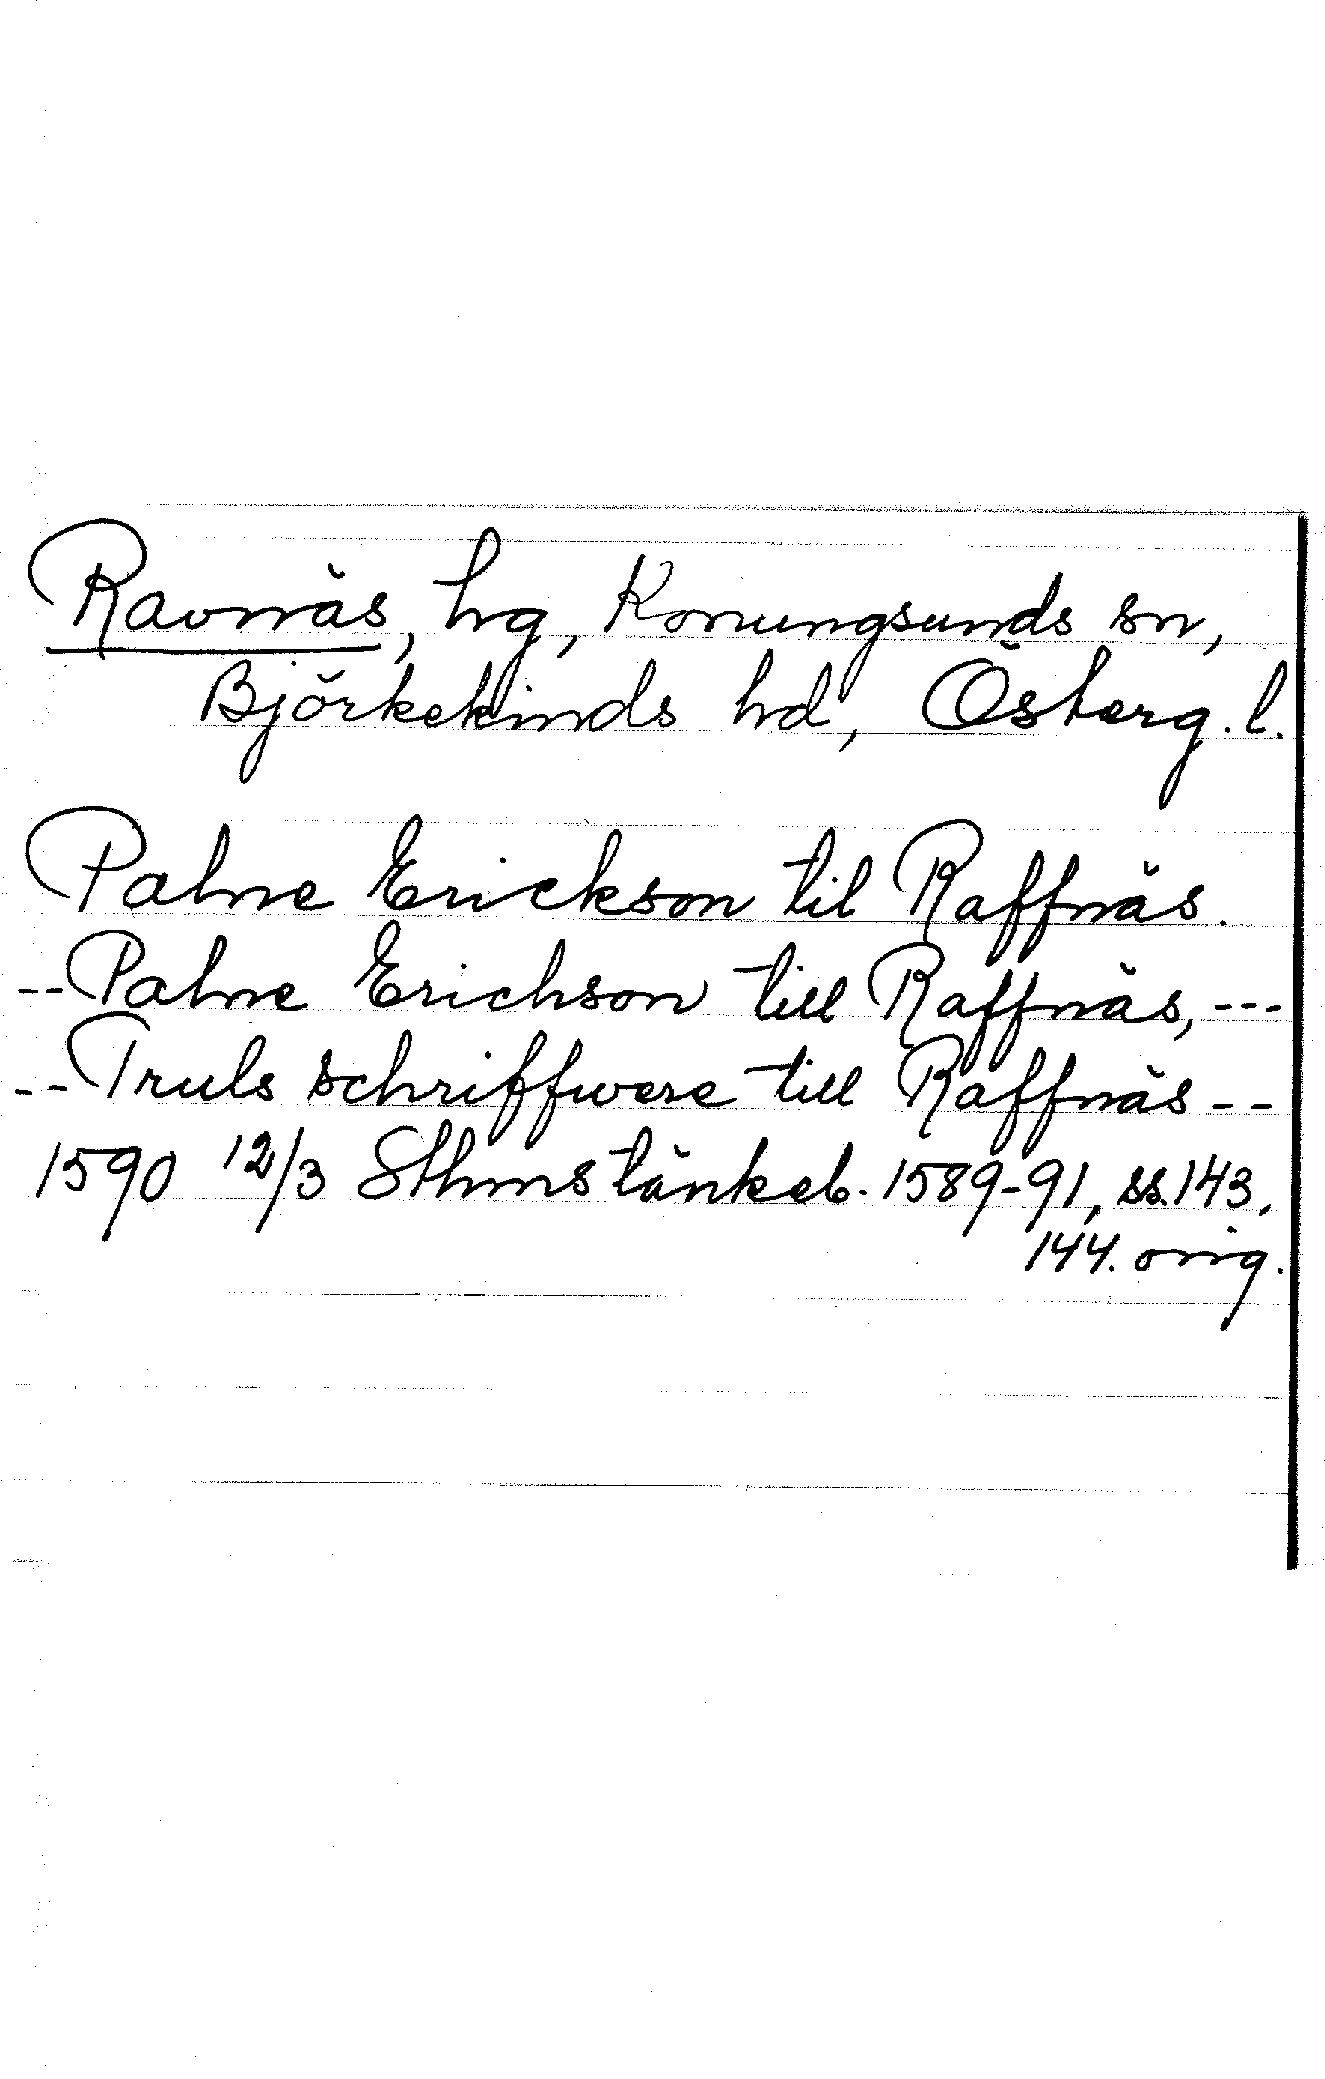 Ravnäs, hg, Konungsunds sn,
Björkekinds hd, Österg. l.
Palne Erickson til Raffnäs.
-- Palne Erichson till Raffnäs, ---
-- Truls schriffwere till Raffnäs --
1590 12/3 Sthms tänkeb. 1589-91, ss. 143,
144. orig.